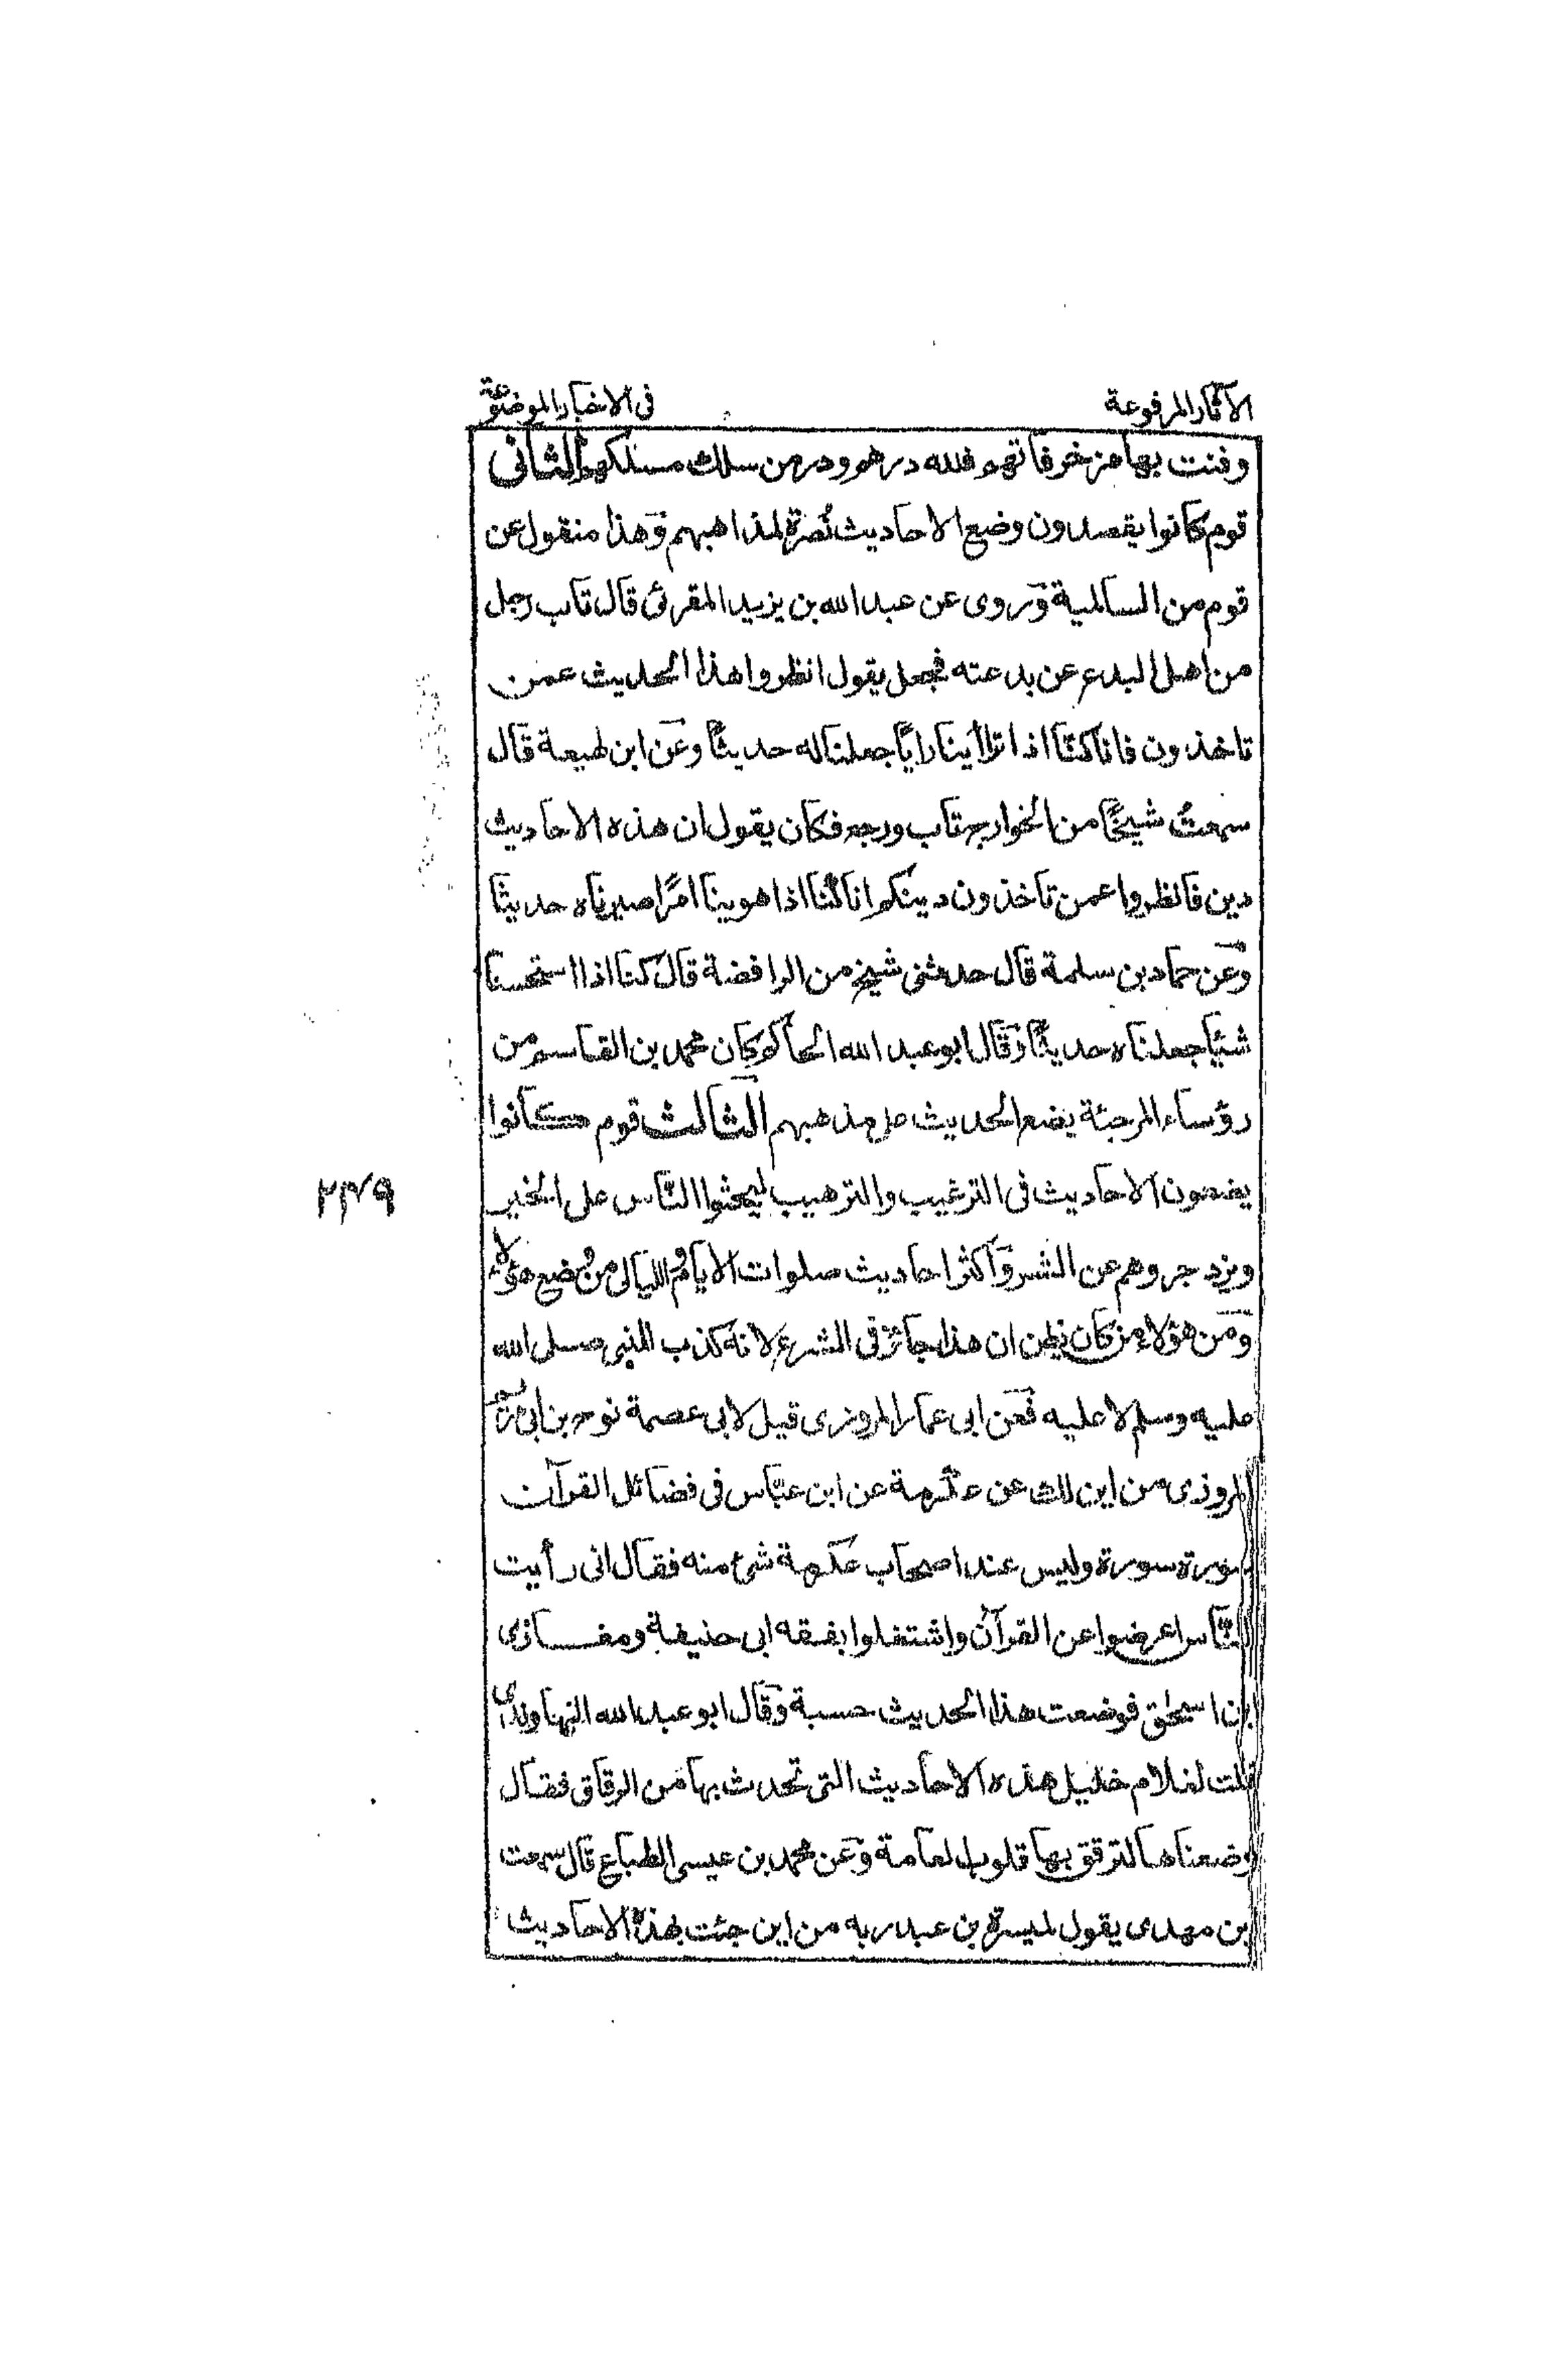 الآثار المرفوعة
فى الاخبار الموضوعة
وفنت بها مزخرفاتهم فلله درهم ودر من سلك مسلكهم الثانى
قوم كانوا يقصدون وضع الاحاديث نُصرة لمذاهبهم وهذا منقول عن
قوم من السالمية وروى عن عبد الله بن يزيد المقرئ قال تاب رجل
من اهل البدع عن بدعته فجعل يقول انظروا هذا الحديث عمن
تاخذون فانا كنّا اذا راينا راياً جعلنا له حديثاً وعن ابن لهيعة قال
سمعتُ شيخًا من الخوارج تاب ورجع فكان يقول ان هذه الاحاديث
دين فانظروا عمن تاخذون دينكم انا كُنّا اذا هوينا امرًا صيرناه حديثًا
وعن حماد بن سلمة قال حدثنى شيخ من الرافضة قال كنا اذا استحسنا
شيًا جعلناه حديثًا وقال ابو عبد الله الحاكم كان محمد بن القاسم من
رؤساء المرجئة يضع الحديث على مذهبهم الثالث قوم كانوا
يضعون الاحاديث فى الترغيب والترهيب ليحثوا النّاس على الخير
ويزدجروهم عن الشر واكثر احاديث صلوات الايام والليالى من وضع هؤلاء
ومن هؤلاء من كان يظن ان هذا جائز فى الشرع لانه كذب للنبى صلى الله
عليه وسلم لا عليه فعن ابى عمار المروزى قيل لابى عصمة نوح بن ابى مريم
المروزى من اين لك عن عكرمة عن ابن عبّاس فى فضائل القرآن
سورة سورة وليس عند اصحاب عكرمة شئ منه فقال انى رأيت
النّاس اعرضوا عن القرآن واشتغلوا بفقه ابى حنيفة ومغازى
ابن اسحٰق فوضعت هذا الحديث حسبة وقال ابو عبد الله النهاوندى
قلت لغلام خليل هذه الاحاديث التى تحدث بها من الرقاق فقال
وضعناها لترقق بها قلوب العامة وعن محمد بن عيسى الطباع قال سمعت
ابن مهدى يقول لميسرة بن عبد ربه من اين جئت بهذه الاحاديث
٢٣٩